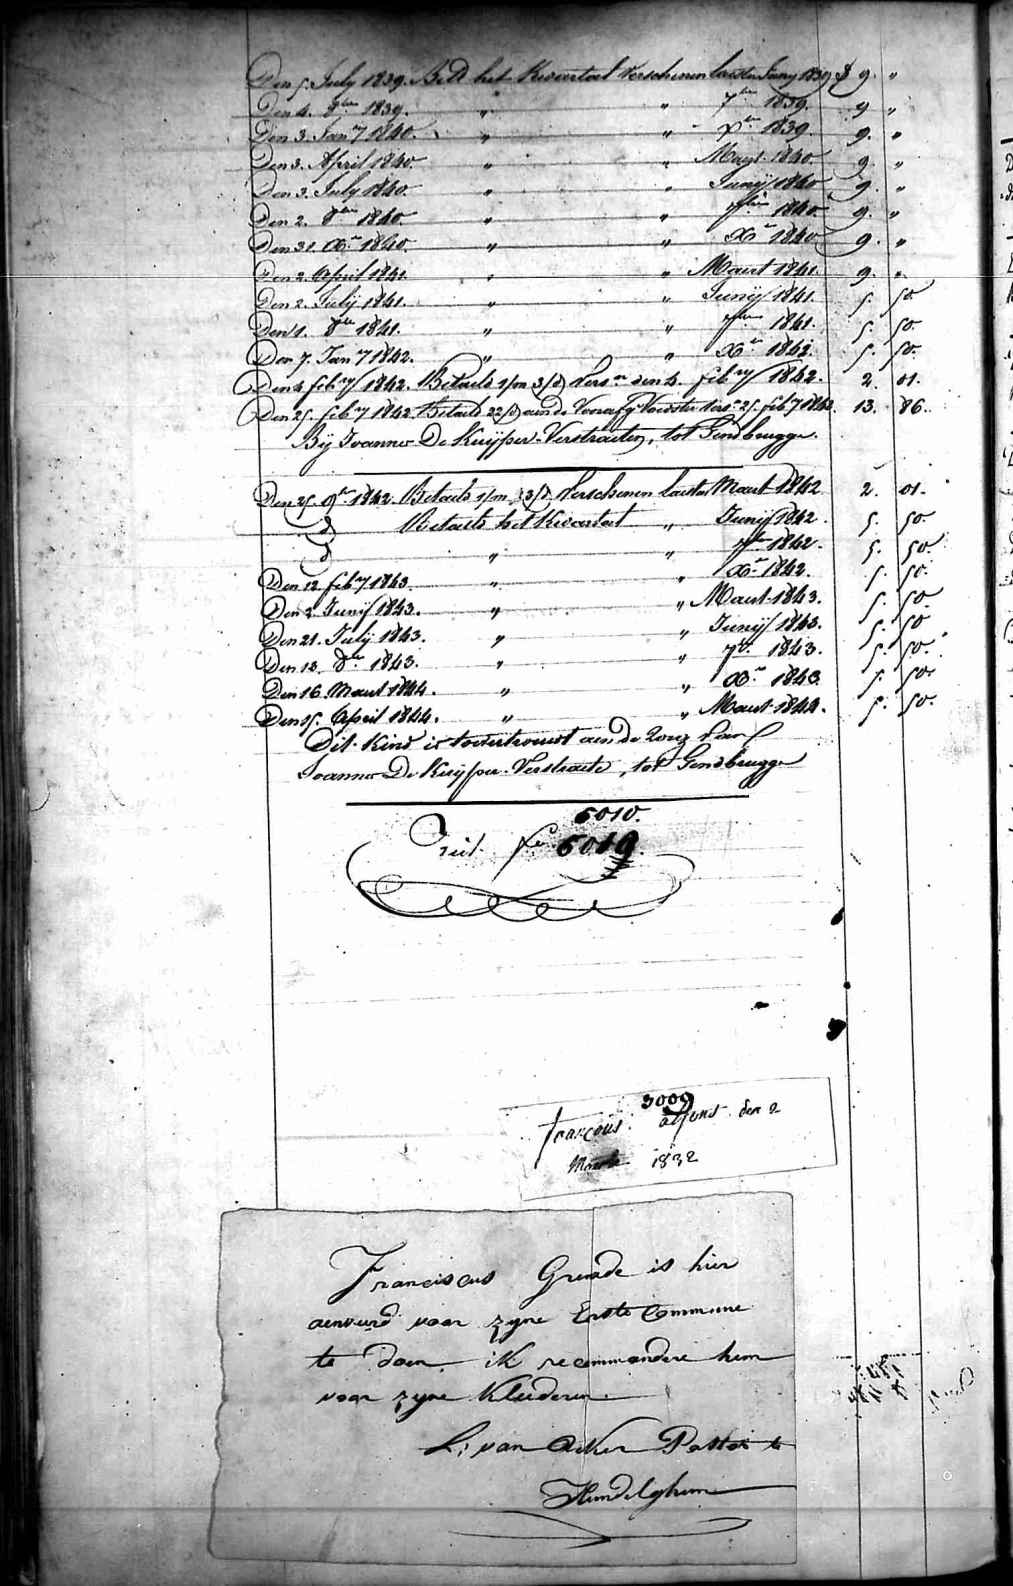 Den 5. July 1839. Bet.d het Kwartael Verschenen laesten Juny 1839 f 9. "
Den 4. 8bre 1839. " " 7bre 1839. 9 "
Den 3. Jan.y 1840. " " Xbre 1839 9. "
Den 3. April 1840. " " Maert 1840 9. "
Den 3. July 1840. " " Junij 1840 9. "
Den 2. 8bre 1840 " " 7bre 1840. 9. "
Den 31. Xbre 1840. " " Xbre 1840 9. "
Den 2. April 1841. " " Maert 1841. 9. "
Den 2. Julij 1841. " " Junij 1841. 5. 50.
Den 1. 8bre 1841. " " 7bre 1841. 5. 50.
Den 7. Jan.y 1842. " " Xbre 1842. 5. 50.
Den 4 feb.ry 1842. Betaelt 1/m 3/d Vers.n den 4. feb.ry 1842. 2. 01.
Den 25. feb.y 1842. Betaelt 22/d aen de Voorafg. Voedster Vers.n 25. feb.y 1842. 13. 86.
Bij Joannes De Kuijper-Verstraeten, tot Gendbrugge.
Den 25. 9br 1842. Betaelt 1/m 3/d Verschenen laesten Maert 1842 2. 01.
Betaelt het Kwartael " Junij 1842. 5. 50.
" " 7bre 1842. 5. 50.
Den 12. feb.y 1843. " " Xbre 1842. 5. 50.
Den 2. Junij 1843. " " Maert 1843. 5. 50.
Den 21. Julij 1843. " " Junij 1843. 5. 50
Den 13. 8bre 1843. " " 7br. 1843. 5. 50.
Den 16. Maert 1844. " " Xbre 1843. 5. 50.
Den 15. April 1844. " " Maert 1844. 5. 50.
Dit Kind is toevertrouwt aen de zorg van
Joannes De Kuijper-Verstraete, tot Gendbrugge
5010.
5019
3009
françois alfons den 2
Maerte 1832
Franciscus Gruade is hier
aenveird voor zyne Erste Commune
te doen. ik recommandere hem
voor zyne Kleederen.
L: van Acker Pastor te
Hundelghem